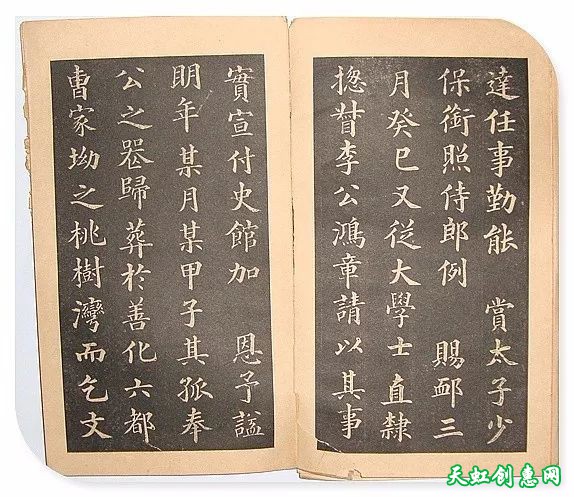 達任事勤能　賞太子少
保銜照侍郎例　賜卹三
月癸巳又從大學士直隸
揔督李公鴻章請以其事
實宣付史館加　恩予謚
明年某月某甲子其孤奉
公之喪歸葬於善化六都
曹家坳之桃樹灣而乞文
天虹创意网